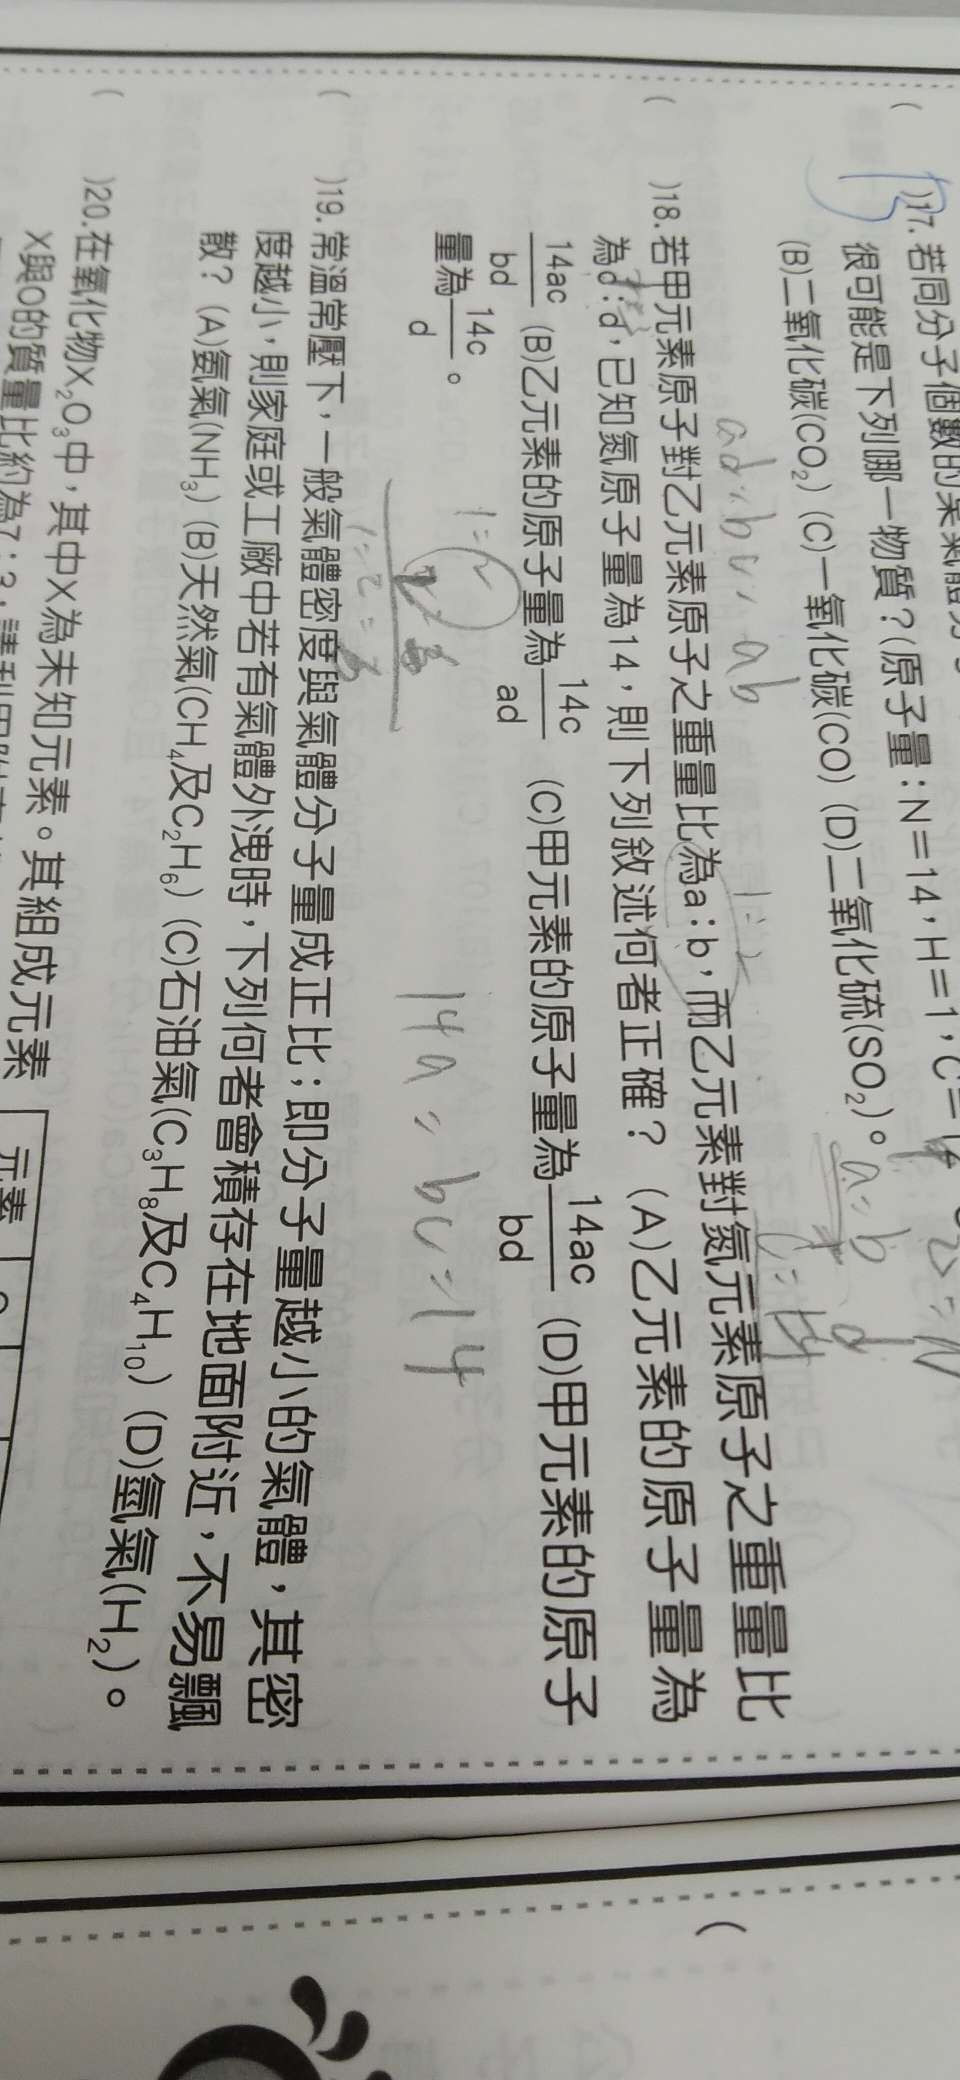 ( )17. 若同分子個數的某氣體
很可能是下列哪一物質？(原子量：N＝14，H＝1，C＝
(B)二氧化碳(CO₂) (C)一氧化碳(CO) (D)二氧化硫(SO₂)。
a=b
ad=bc=ab
( )18. 若甲元素原子對乙元素原子之重量比為a：b，而乙元素對氮元素原子之重量比
為c：d，已知氮原子量為14，則下列敘述何者正確？ (A)乙元素的原子量為
14ac/bd (B)乙元素的原子量為14c/ad (C)甲元素的原子量為14ac/bd (D)甲元素的原子
量為14c/d。
1=2
14a=bc=14
( )19. 常溫常壓下，一般氣體密度與氣體分子量成正比；即分子量越小的氣體，其密
度越小，則家庭或工廠中若有氣體外洩時，下列何者會積存在地面附近，不易飄
散？ (A)氨氣(NH₃) (B)天然氣(CH₄及C₂H₆) (C)石油氣(C₃H₈及C₄H₁₀) (D)氫氣(H₂)。
( )20. 在氧化物X₂O₃中，其中X為未知元素。其組成元素
X與O的質量比約為7：3，請利用
元素
(